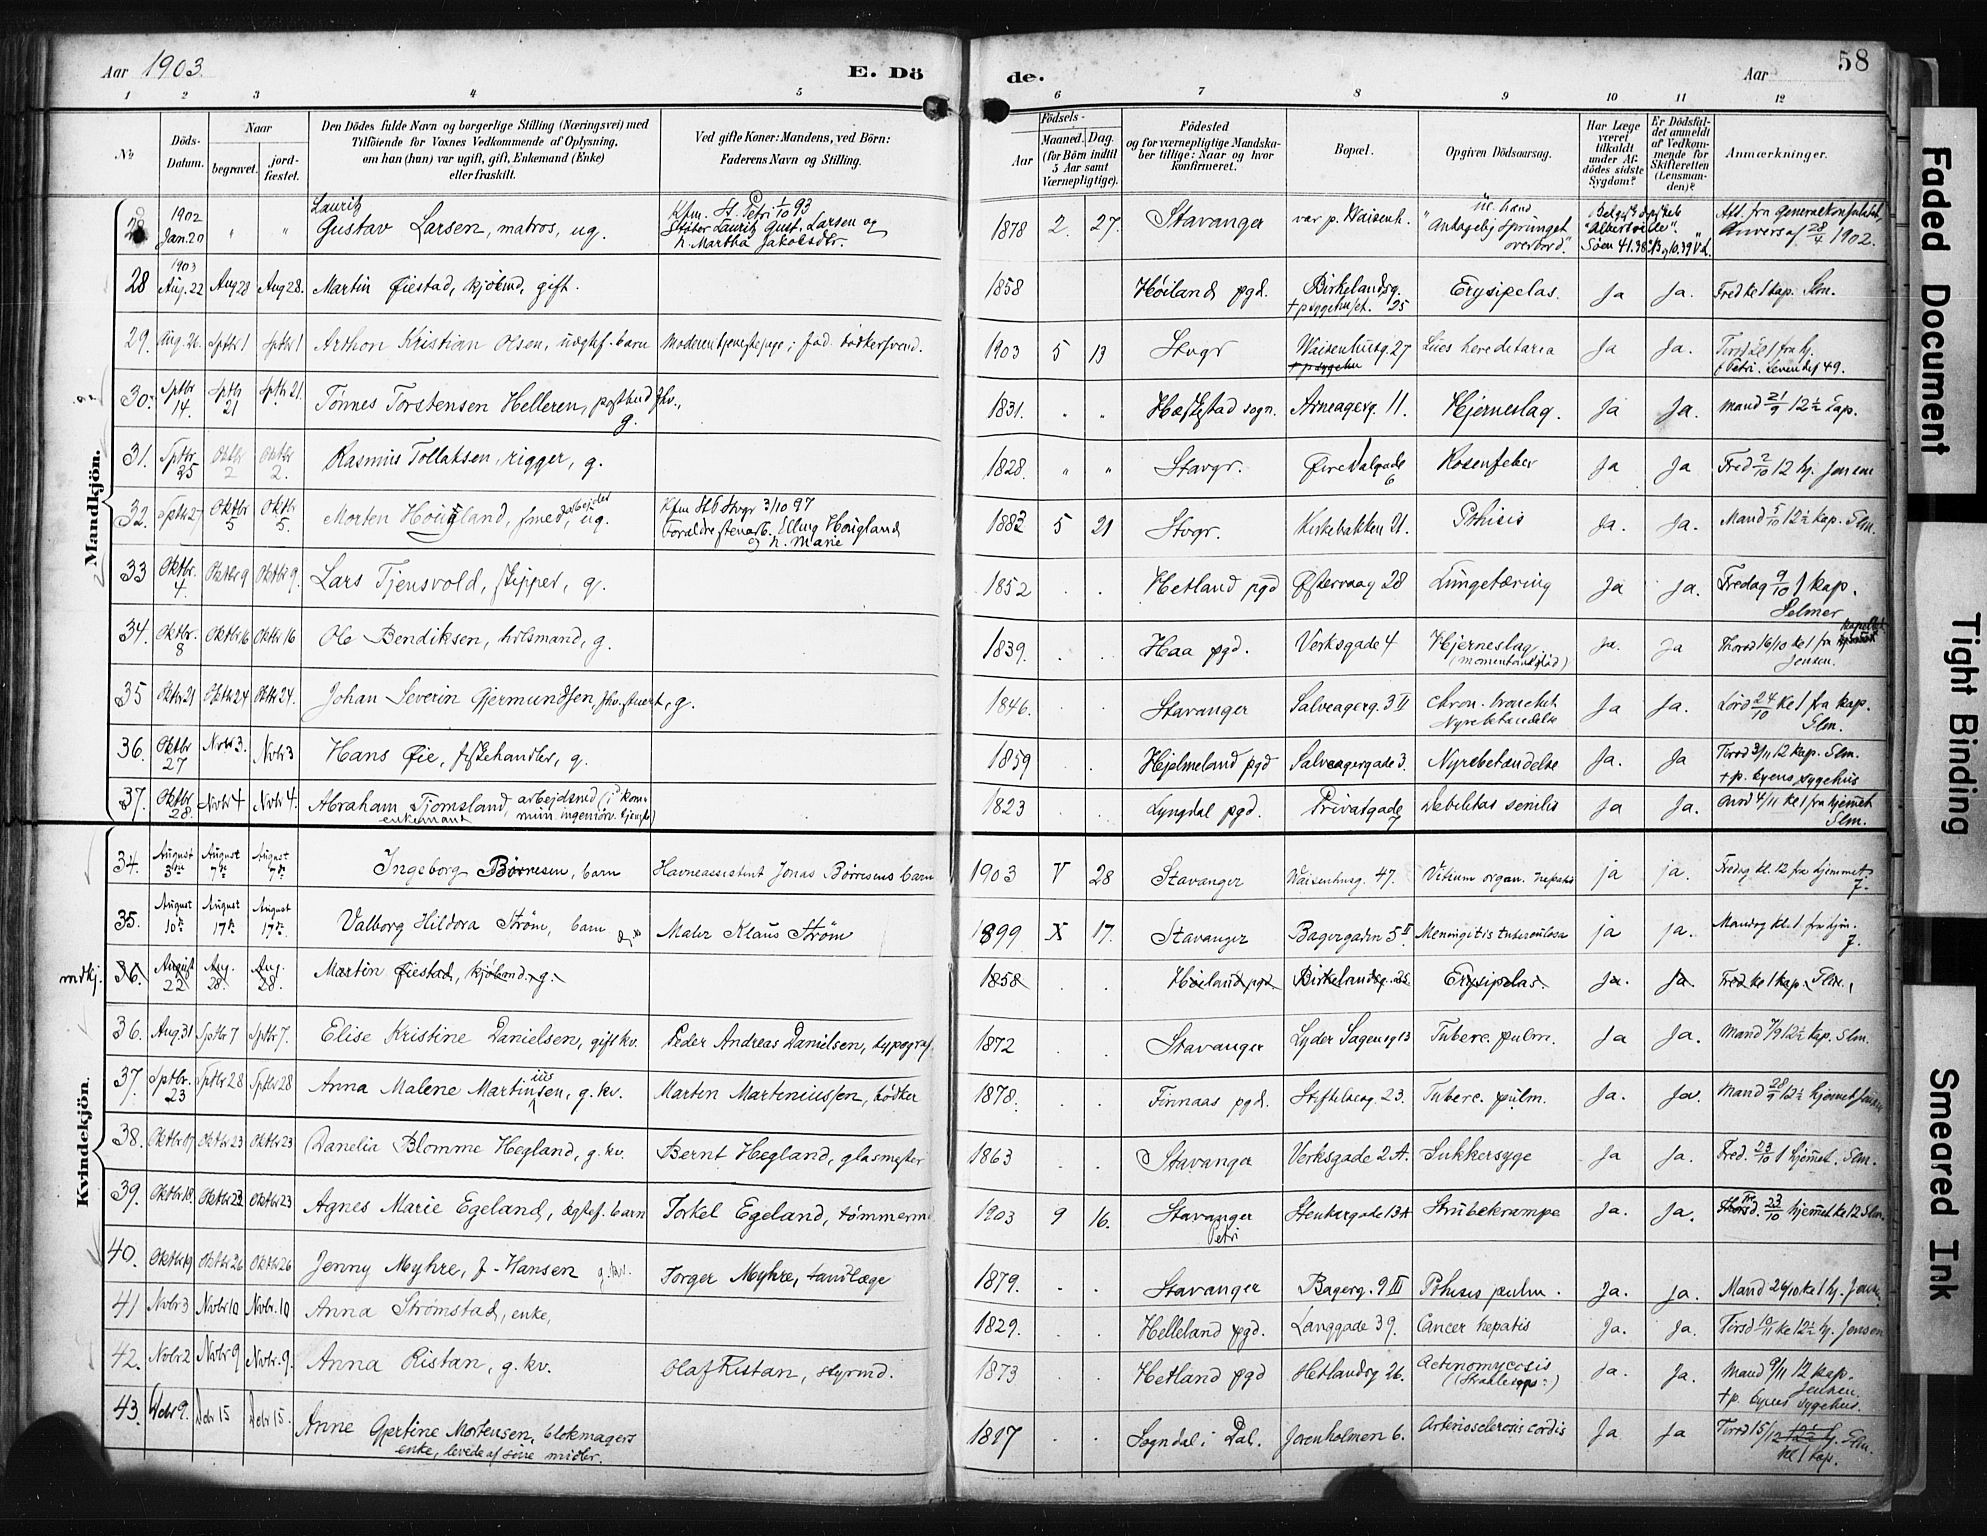 Aar 1903.
E. Dö
de.
Aar
58
1 2 3 4 5 6 7 8 9 10 11 12
№
Döds-Datum.
Naar
begravet.
jord-fæstet.
Den Dödes fulde Navn og borgerlige Stilling (Næringsvei) med
Tilföiende for Voxnes Vedkommende af Oplysning,
om han (hun) var ugift, gift, Enkemand (Enke)
eller fraskilt.
Ved gifte Koner: Mandens, ved Börn:
Faderens Navn og Stilling.
Födsels-
Aar
Maaned. Dag.
(for Börn indtil
5 Aar samt
Værnepligtige).
Födested
og for værnepligtige Mandska-
ber tillige: Naar og hvor
konfirmeret.
Bopæl.
Opgiven Dödsaarsag.
Har Læge
været
tilkaldt
under Af-
dödes sidste
Sygdom?
Er Dödsfal-
det anmeldt
af Vedkom-
mende for
Skifteretten
(Lensman-
den)?
Anmærkninger.
Mandkjön.
1902 Jan. 20 " " Lauritz Gustav Larsen, matros, ug. Kfm. St. Petri 1/10 93 Gust. Larsen og h. Martha Jakobsdtr. 1878 2. 27. Stavanger var p. Waisenh. sprunget overbord". "Albertville". Att. fra Generalkonsulatet Anvers af 28/4 1902.
28 1903 Aug. 22 Aug 28 Aug 28. Martin Øiestad, kjøbmd, gift. 1858 Høiland pgd. Birkelandsg. 25 † p sygehuset. Erysipelas. Ja Ja. Fred kl 1 kap. Slm.
29. Aug. 26. Sptbr 1 Sptbr 1 Arthon Kristian Olsen, uægtef. barn Moderen tjenestepige; fad. bødkersvend. 1903 5 13 Stvgr Waisenhusg. 27 † p sygehu Lues hereditaria Ja Ja. Petri. 49.
30. Sptbr 14. Sptbr 21 Sptbr 21. Tønnes Torstensen Helleren, postbud fhv., g. 1831. " " Hæskestad sogn. Arneagerg. 11. Hjerneslag. Ja Ja. Mand 21/9 12½ kap.
31. Sptbr. 25 Oktbr 2 Oktbr 2. Rasmus Tollaksen, rigger, g. 1828. " " Stavgr. Øvre Dalgade 6 Rosenfeber Ja Ja Fred 2/10 12 hj. Jensen
32. Sptbr 27 Oktbr 5 Oktbr 5. Morten Hougland, smedarbejder, ug. Kfm St P Stvgr 3/10 97 Elling Hougland og h. Marie 1883 5 21 Stvgr. Kirkebakken 21. Pthisis Ja. Ja. Mand 5/10 12½ kap. Slm.
33 Oktbr. 4 Oktbr 9 Oktbr 9. Lars Tjensvold, skipper, g. 1852 . . Hetland pgd Østervaag 28 Lungetæring Ja Ja. Fredag 9/10 1 kap. Selmer
34. Oktbr. 8 Oktbr 16 Oktbr 16 Ole Bendiksen, g. 1839. . . Haa pgd. Verksgade 4 Hjerneslag (momentan død) Ja. Ja 16/10 kl 1 fra kapellet Jensen.
35 Oktbr 21 Oktbr 24 Oktbr 24. Johan Severin Gjermundsen, fhv. stuert, g. 1846. . . Stavanger Salveagerg. 3 II chron. bronchit Nyrebetændelse Ja Ja. Lørd 24/10 kl 1 fra kap. Slm.
36. Oktbr 27 Nvbr 3. Nvbr 3 Hans Øie, fiskehandler, g. 1859 . . Hjelmeland pgd Salveagergade 3. Nyrebetændelse Ja. Ja Tirsd 3/11 12 kap. Slm. † p. byens sygehus
37. Oktbr 28. Nvbr 4 Nvbr 4. Abraham Tjomsland, arbejdsmd (i kommun. ingeniørv. tjeneste) enkemand 1823 . . Lyngdal pgd. Privatgade 7 debilitas senilis Ja Ja. Onsd 4/11 kl 1 fra hjemmet Slm.
Kvindekjön.
34. August 3die August 7de August 7de Ingeborg Børresen, barn Havneassistent Jonas Børresens barn 1903 V 28 Stavanger Waisenhusg. 47. Vitium organ. hepatis ja ja. Fredag kl. 12 fra hjemmet J.
35. August 10de August 17de August 17de Valborg Hildora Strøm, barn Maler Klaus Strøm 1899 X 17. Stavanger Bagergaden 5 II Meningitis tuberculosa ja ja. Mandag kl. 1 fra hjm. J.
mdkj. 36. August 22 Aug. 28. Aug. 28. Martin Øiestad, kjøbmd. g. 1858 . . Høiland pgd. Birkelandsg. 25 Erysipelas. Ja. Ja. Fred kl 1 kap. Slm.
36. Aug 31 Sptbr 7 Sptbr 7. Elise Kristine Danielsen, gift kv. Peder Andreas Danielsen, typograf. 1872 . . Stavanger Lyder Sagensg 13 Tuberc. pulm. Ja Ja. Mand 7/9 12½ kap. Slm.
37. Sptbr. 23 Sptbr 28 Sptbr 28 Anna Malene Martiniussen, g. kv. Martin Martiniussen, bødker 1878. . . Finnaas pgd. Stiftelsesg. 23. Tuberc. pulm. Ja. Ja. Mand 28/9 12½ hjemmet Jensen
38. Oktbr 17 Oktbr 23 Oktbr 23 Danelia Blomme Hegland, g. kv. Bernt Hegland, glasmester 1863 . . Stavanger Verksgade 2A. Sukkersyge Ja Ja. Fred. 23/10 1 hjemmet. Slm.
39. Oktbr 18. Oktbr 23 Oktbr 23 Agnes Marie Egeland, ægtef. barn Torkel Egeland, tømmerm 1903 9 16. Stavanger Petri Stenkargade 13A Strubekrampe Ja. Ja. 23/10 hjemmet kl 12 Slm.
40. Oktbr 19 Oktbr 26 Oktbr 26 Jenny Myhre, f. Hansen g. kv. Torger Myhre, tandlæge 1879. . . Stavanger Bagerg. 9 III Pthisis pulm. Ja. Ja. Mand 26/10 kl 1 hj. Jensen
41 Nvbr 3 Nvbr 10 Nvbr. 10 Anna Strømstad, enke, 1829. . . Helleland pgd. Langgade 39. Cancer hepatis Ja. Ja. Tirsd 10/11 kl 12½ hj. Jensen
42. Nvbr 2 Nvbr 9 Nvbr. 9. Anna Ristan, g. kv. Olaf Ristan, styrmd. 1873 . . Hetland pgd Hetlandsg 26. Actinomycosis Ja. Ja. Mand 9/11 12 kap. Jensen. † p. byens sygehus.
43. Debr 9. Debr 15 Debr 15. Anne Gjertine Mortensen, blokmagers enke, levede af sine midler. 1817 . . Sogndal i Dal. Jorenholmen 6. Arteriosclerosis cordis Ja Ja Tirsd 15/12 12½ hj. Slm. kl 1 kap.
Faded Document
Tight Binding
Smeared Ink